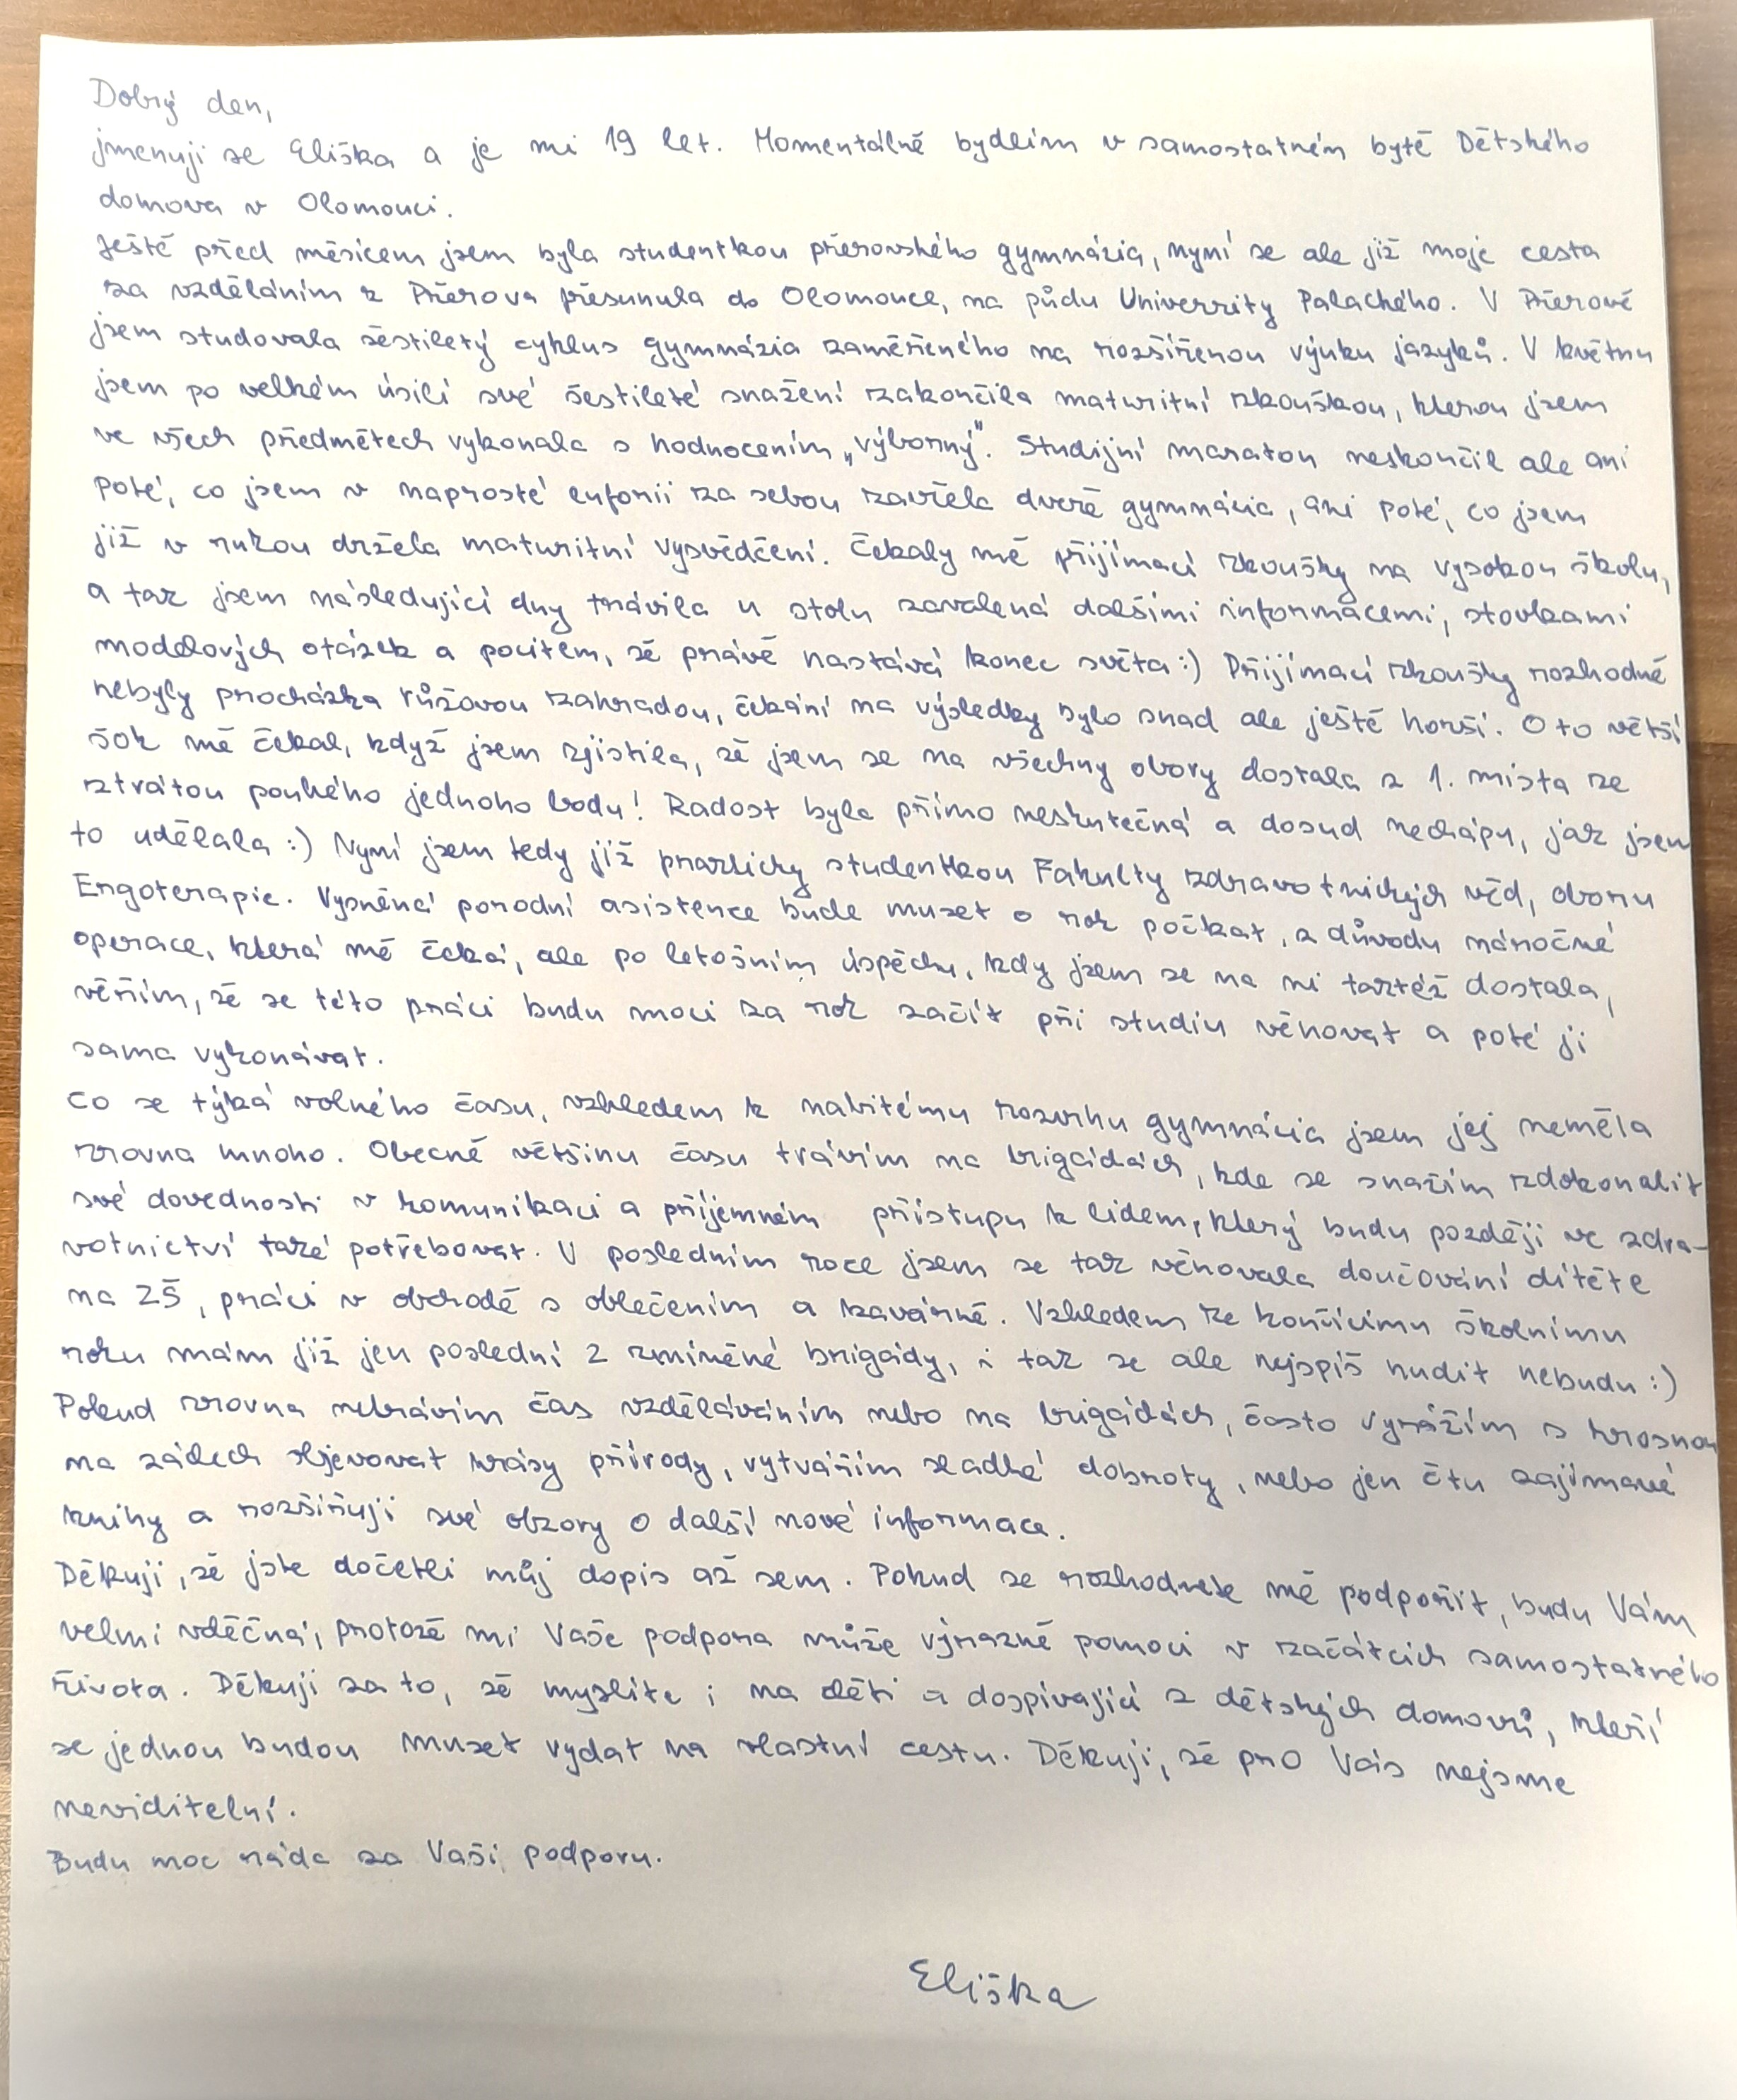 Dobrý den,
jmenuji se Eliška a je mi 19 let. Momentálně bydlím v samostatném bytě Dětského
domova v Olomouci.
Ještě před měsícem jsem byla studentkou přerovského gymnázia, nyní se ale již moje cesta
za vzděláním z Přerova přesunula do Olomouce, na půdu Univerzity Palackého. V Přerově
jsem studovala šestiletý cyklus gymnázia zaměřeného na rozšířenou výuku jazyků. V květnu
jsem po velkém úsilí své šestileté snažení zakončila maturitní zkouškou, kterou jsem
ve všech předmětech vykonala s hodnocením „výborný". Studijní maraton neskončil ale ani
poté, co jsem v naprosté euforii za sebou zavřela dveře gymnázia, ani poté, co jsem
již v rukou držela maturitní vysvědčení. Čekaly mě přijímací zkoušky na vysokou školu,
a tak jsem následující dny trávila u stolu zavalená dalšími informacemi, stovkami
modelových otázek a pocitem, že právě nastává konec světa :) Přijímací zkoušky rozhodně
nebyly procházka růžovou zahradou, čekání na výsledky bylo snad ale ještě horší. O to větší
šok mě čekal, když jsem zjistila, že jsem se na všechny obory dostala z 1. místa se
ztrátou pouhého jednoho bodu! Radost byla přímo neskutečná a dosud nechápu, jak jsem
to udělala :) Nyní jsem tedy již prakticky studentkou Fakulty zdravotnických věd, oboru
Ergoterapie. Vysněná porodní asistence bude muset o rok počkat, z důvodu náročné
operace, která mě čeká, ale po letošním úspěchu, kdy jsem se na ni taktéž dostala,
věřím, že se této práci budu moci za rok začít při studiu věnovat a poté ji
sama vykonávat.
Co se týká volného času, vzhledem k nabitému rozvrhu gymnázia jsem jej neměla
zrovna mnoho. Obecně většinu času trávím na brigádách, kde se snažím zdokonalit
své dovednosti v komunikaci a příjemném přístupu k lidem, který budu později ve zdra-
votnictví také potřebovat. V posledním roce jsem se tak věnovala doučování dítěte
na ZŠ, práci v obchodě s oblečením a kavárně. Vzhledem ke končícímu školnímu
roku mám již jen poslední 2 zmíněné brigády, i tak se ale nejspíš nudit nebudu :)
Pokud zrovna netrávím čas vzděláváním nebo na brigádách, často vyrážím s krosnou
na zádech objevovat krásy přírody, vytvářím sladké dobroty, nebo jen čtu zajímavé
knihy a rozšiřuji své obzory o další nové informace.
Děkuji, že jste dočetli můj dopis až sem. Pokud se rozhodnete mě podpořit, budu Vám
velmi vděčná, protože mi Vaše podpora může výrazně pomoci v začátcích samostatného
života. Děkuji za to, že myslíte i na děti a dospívající z dětských domovů, kteří
se jednou budou muset vydat na vlastní cestu. Děkuji, že pro Vás nejsme
neviditelní.
Budu moc ráda za Vaši podporu.
Eliška